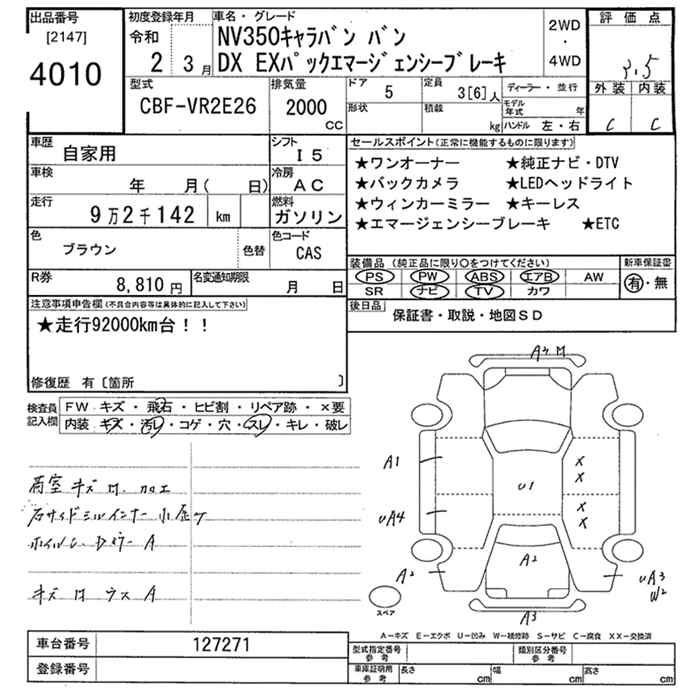 出品番号
[2147]
4010
初度登録年月
令和
2 3月
車名・グレード
NV350キャラバン バン
DX EXパックエマージェンシーブレーキ
2WD
・
4WD
評価点
3.5
外装 内装
C C
型式
CBF-VR2E26
排気量
2000
CC
ドア
5
形状
定員
3[6]人
積載
kg
ディーラー・並行
モデル年式 年
ハンドル 左・右
車歴
自家用
シフト
I5
車検
年 月( 日)
冷房
AC
走行
9万2千142 km
燃料
ガソリン
色
ブラウン
色替
色コード
CAS
R券
8,810円
名変通知期限
月 日
セールスポイント(正常に機能するものに限ります)
★ワンオーナー ★純正ナビ・DTV
★バックカメラ ★LEDヘッドライト
★ウィンカーミラー ★キーレス
★エマージェンシーブレーキ ★ETC
装備品(純正品に限り○をつけてください)
PS PW ABS エアB AW
SR ナビ TV カワ
新車保証書
有・無
後日品
保証書・取説・地図SD
注意事項申告欄(不具合内容等は具体的に記入して下さい)
★走行92000km台!!
修復歴 有〔箇所 〕
検査員記入欄
FW キズ・飛石・ヒビ割・リペア跡・×要
内装 キズ・汚レ・コゲ・穴・スレ・キレ・破レ
荷室 キズ
ホイルC
A
キズ A
A1
A2
A3
U1
A2
A3
W2
スペア
A-キズ E-エクボ U-凹み W-補修跡 S-サビ C-腐食 XX-交換済
車台番号
127271
登録番号
型式指定番号
参考
類別区分番号
参考
車庫証明用
参考
長さ cm
幅 cm
高さ cm